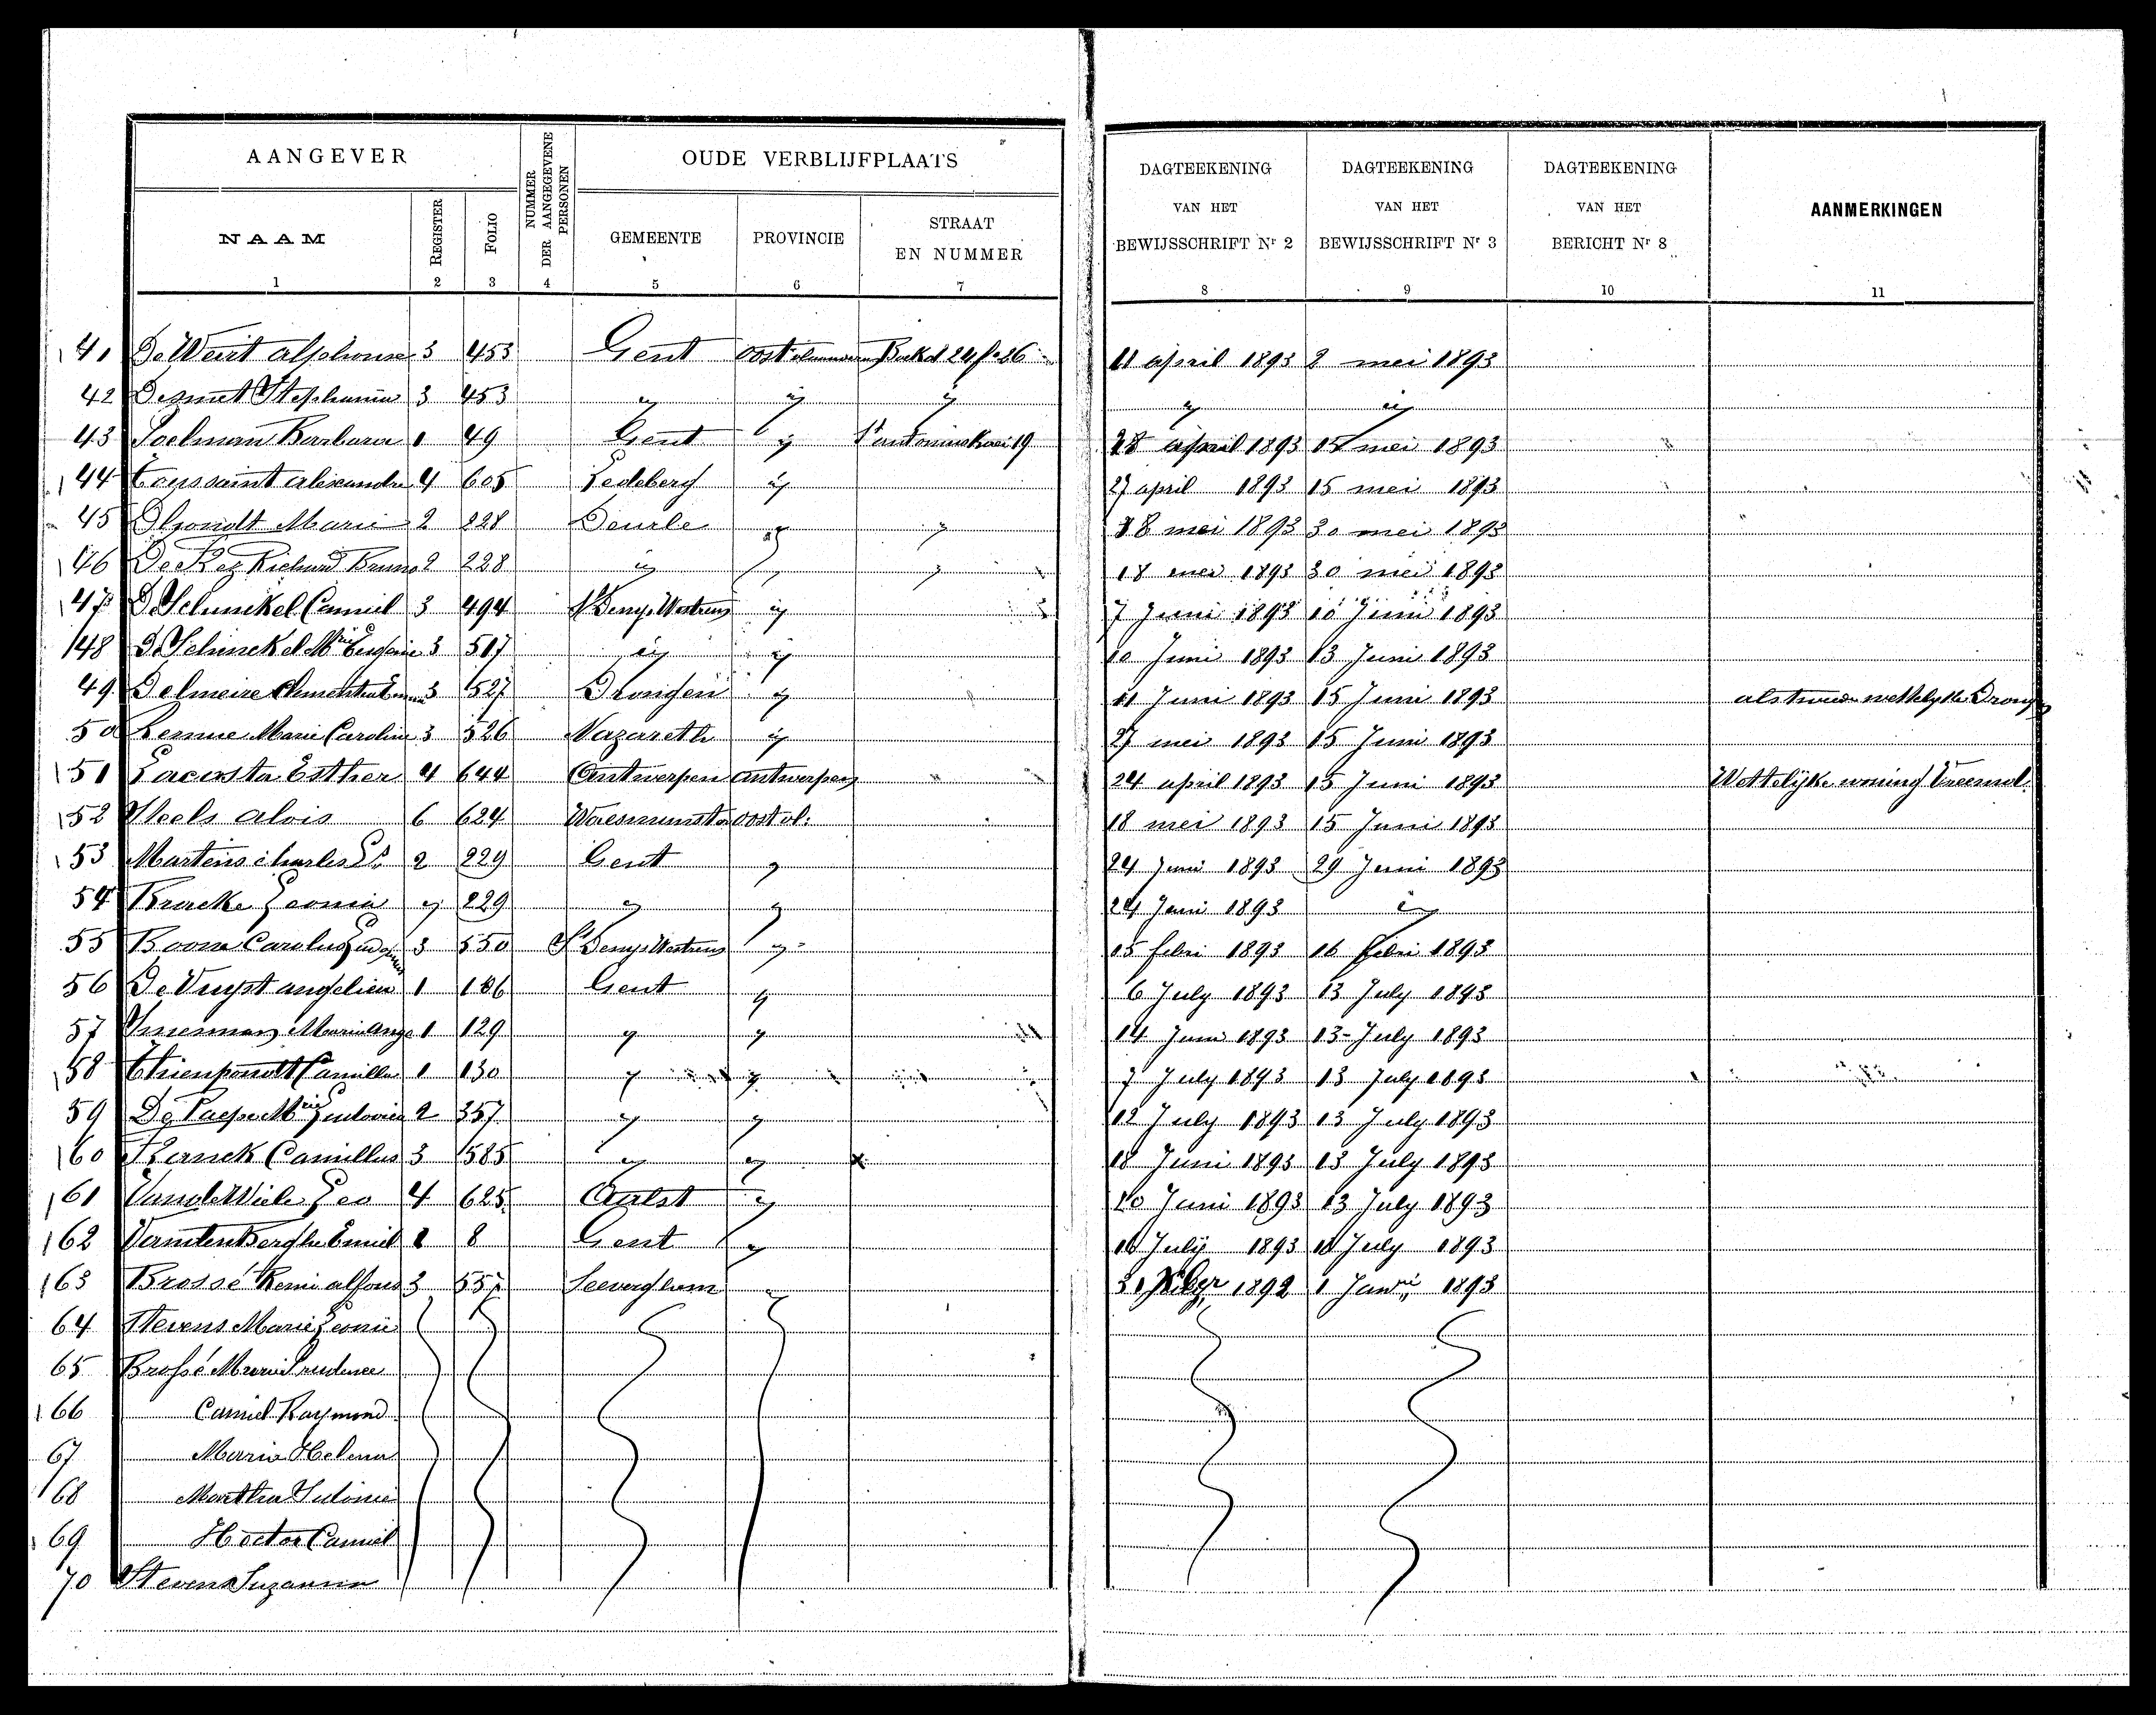 AANGEVER
NUMMER DER AANGEGEVENE PERSONEN
OUDE VERBLIJFPLAATS
DAGTEEKENING VAN HET BEWIJSSCHRIFT Nr 2
DAGTEEKENING VAN HET BEWIJSSCHRIFT Nr 3
DAGTEEKENING VAN HET BERICHT Nr 8
AANMERKINGEN
NAAM
REGISTER
FOLIO
GEMEENTE
PROVINCIE
STRAAT EN NUMMER
1 2 3 4 5 6 7 8 9 10 11
141 De Weirt Alphonse 3 453 Gent 11 april 1893 2 mei 1893
42 Desmet Stephanie 3 453
43 Soelman Barbara 1 49 Gent 15 mei 1893
144 Toussaint Alexander 4 605 Ledeberg 27 april 1893 15 mei 1893
45 D'hondt Marie 2 228 Deurle 18 mei 1893 30 mei 1893
146 Richard Bruno 2 228 18 mei 1893 30 mei 1893
147 De Schinckel Camiel 3 494 St Denys Westrem 7 Juni 1893 10 Juni 1893
148 De Schinckel Mrie Eugenie 3 517 10 Juni 1893 13 Juni 1893
49 Delmeire 3 527 Drongen 11 Juni 1893 15 Juni 1893
50 Marie Carolin 3 526 Nazareth 27 mei 1893 15 Juni 1893
151 Esther 4 644 Antwerpen Antwerpen 24 april 1893 15 Juni 1893 Wettelijke woning
152 Alois 6 624 Waesmunster Oost vl. 18 mei 1893 15 Juni 1893
153 Martens Charles Ls 2 229 Gent 24 Juni 1893 29 Juni 1893
54 Bracke Leonie 229 24 Juni 1893
55 3 550 St Denys Westrem 15 febri 1893 16 febri 1893
56 De Vuyst Angelien 1 186 Gent 6 July 1893 13 July 1893
57 1 129 14 Juni 1893 13 July 1893
158 Thienpondt Camillus 1 130 7 July 1893 13 July 1893
59 De Paepe Mrie Ludovica 2 357 12 July 1893 13 July 1893
160 Camillus 3 585 18 Juni 1893 13 July 1893
161 Vande Wiele Leo 4 625 Aalst 10 Juni 1893 13 July 1893
162 Vanden Berghe Emiel 1 8 Gent 1893 July 1893
163 Brossé Remi Alfons 3 557 Seeverghem 1892 1 Januri 1893
64 Stevens Marie Leonie
65 Brossé Marie Prudence
166 Camiel Raymond
67 Maria Helena
168 Martha Sidonie
169 Hector Camiel
70 Stevens Suzanna